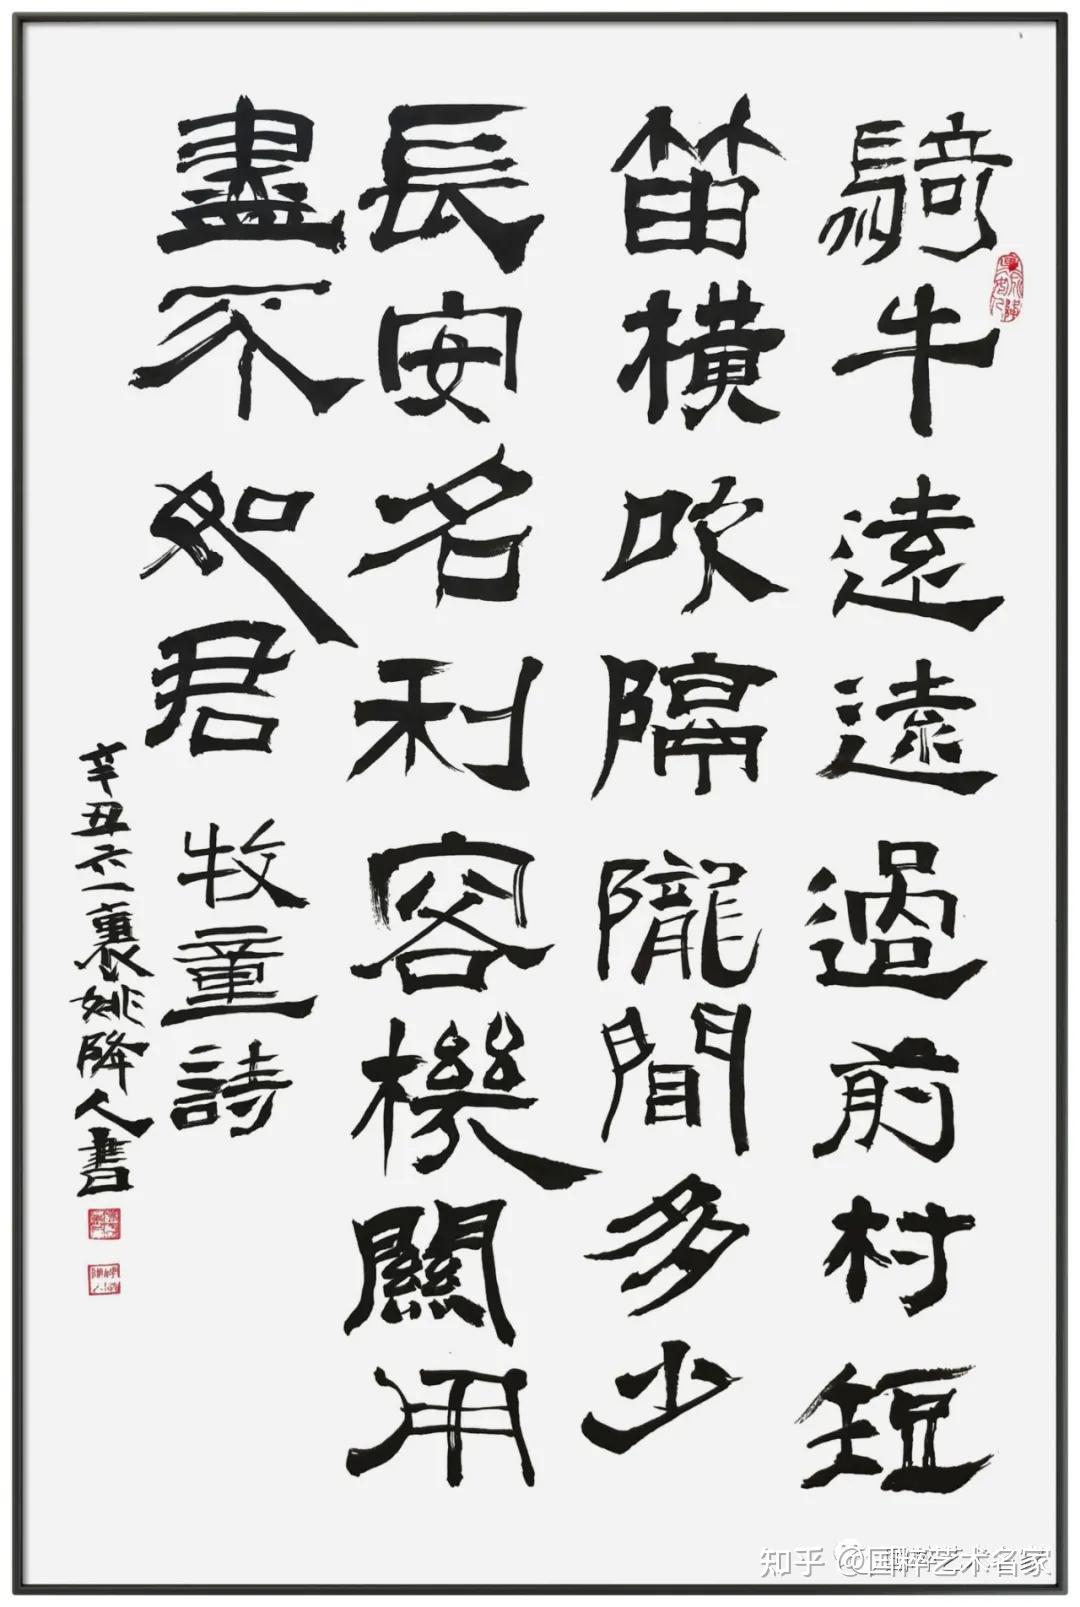 騎牛遠遠過前村短
笛橫吹隔隴間多少
長安名利客機關用
盡不如君
牧童詩
辛丑六一裏姚降人書
知乎 @国粹艺术名家